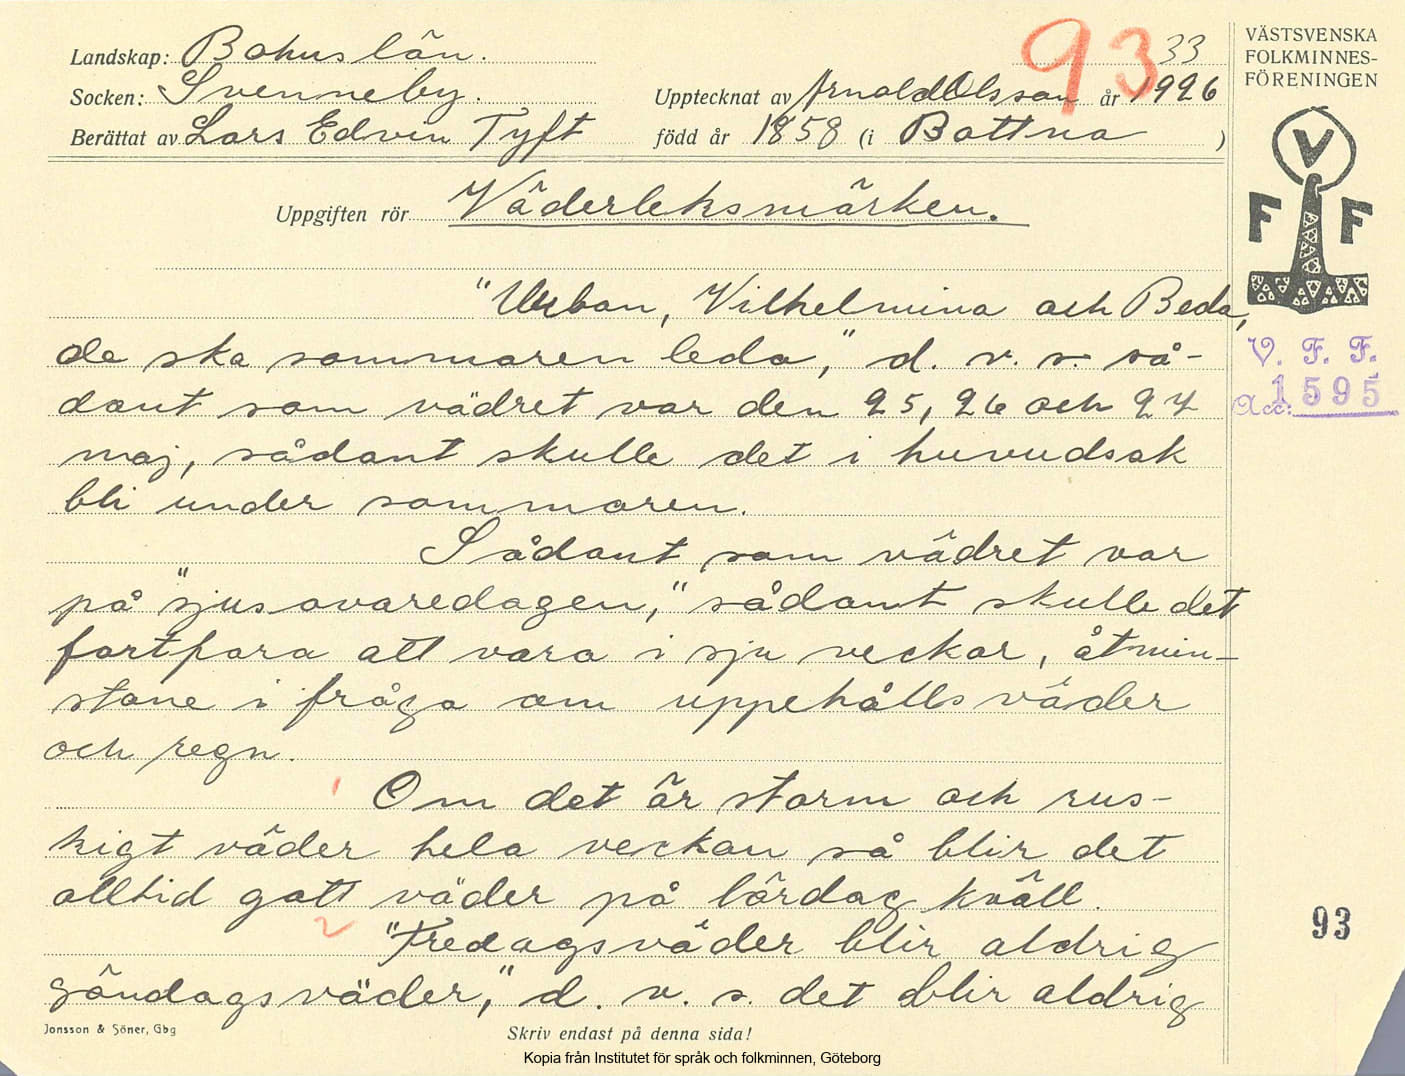 Landskap: Bohuslän.
Socken: Svenneby.
Berättat av Lars Edvin Tyft
93
33
Upptecknat av Arnold Olsson år 1926
född år 1858 (i Bottna )
Uppgiften rör Väderleksmärken.
VÄSTSVENSKA
FOLKMINNES-
FÖRENINGEN
V
F F
V. F. F.
Acc: 1595
"Urban, Vilhelmina och Beda,
de ska sommaren leda," d. v. s. så-
dant som vädret var den 25, 26 och 27
maj, sådant skulle det i huvudsak
bli under sommaren.
Sådant som vädret var
på "sjusovaredagen," sådant skulle det
fortfara att vara i sju veckor, åtmin-
stone i fråga om uppehållsväder
och regn.
1 Om det är storm och rus-
kigt väder hela veckan så blir det
alltid gott väder på lördag kväll.
2 "Fredagsväder blir aldrig
söndagsväder," d. v. s. det blir aldrig
93
Jonsson & Söner, Gbg
Skriv endast på denna sida!
Kopia från Institutet för språk och folkminnen, Göteborg